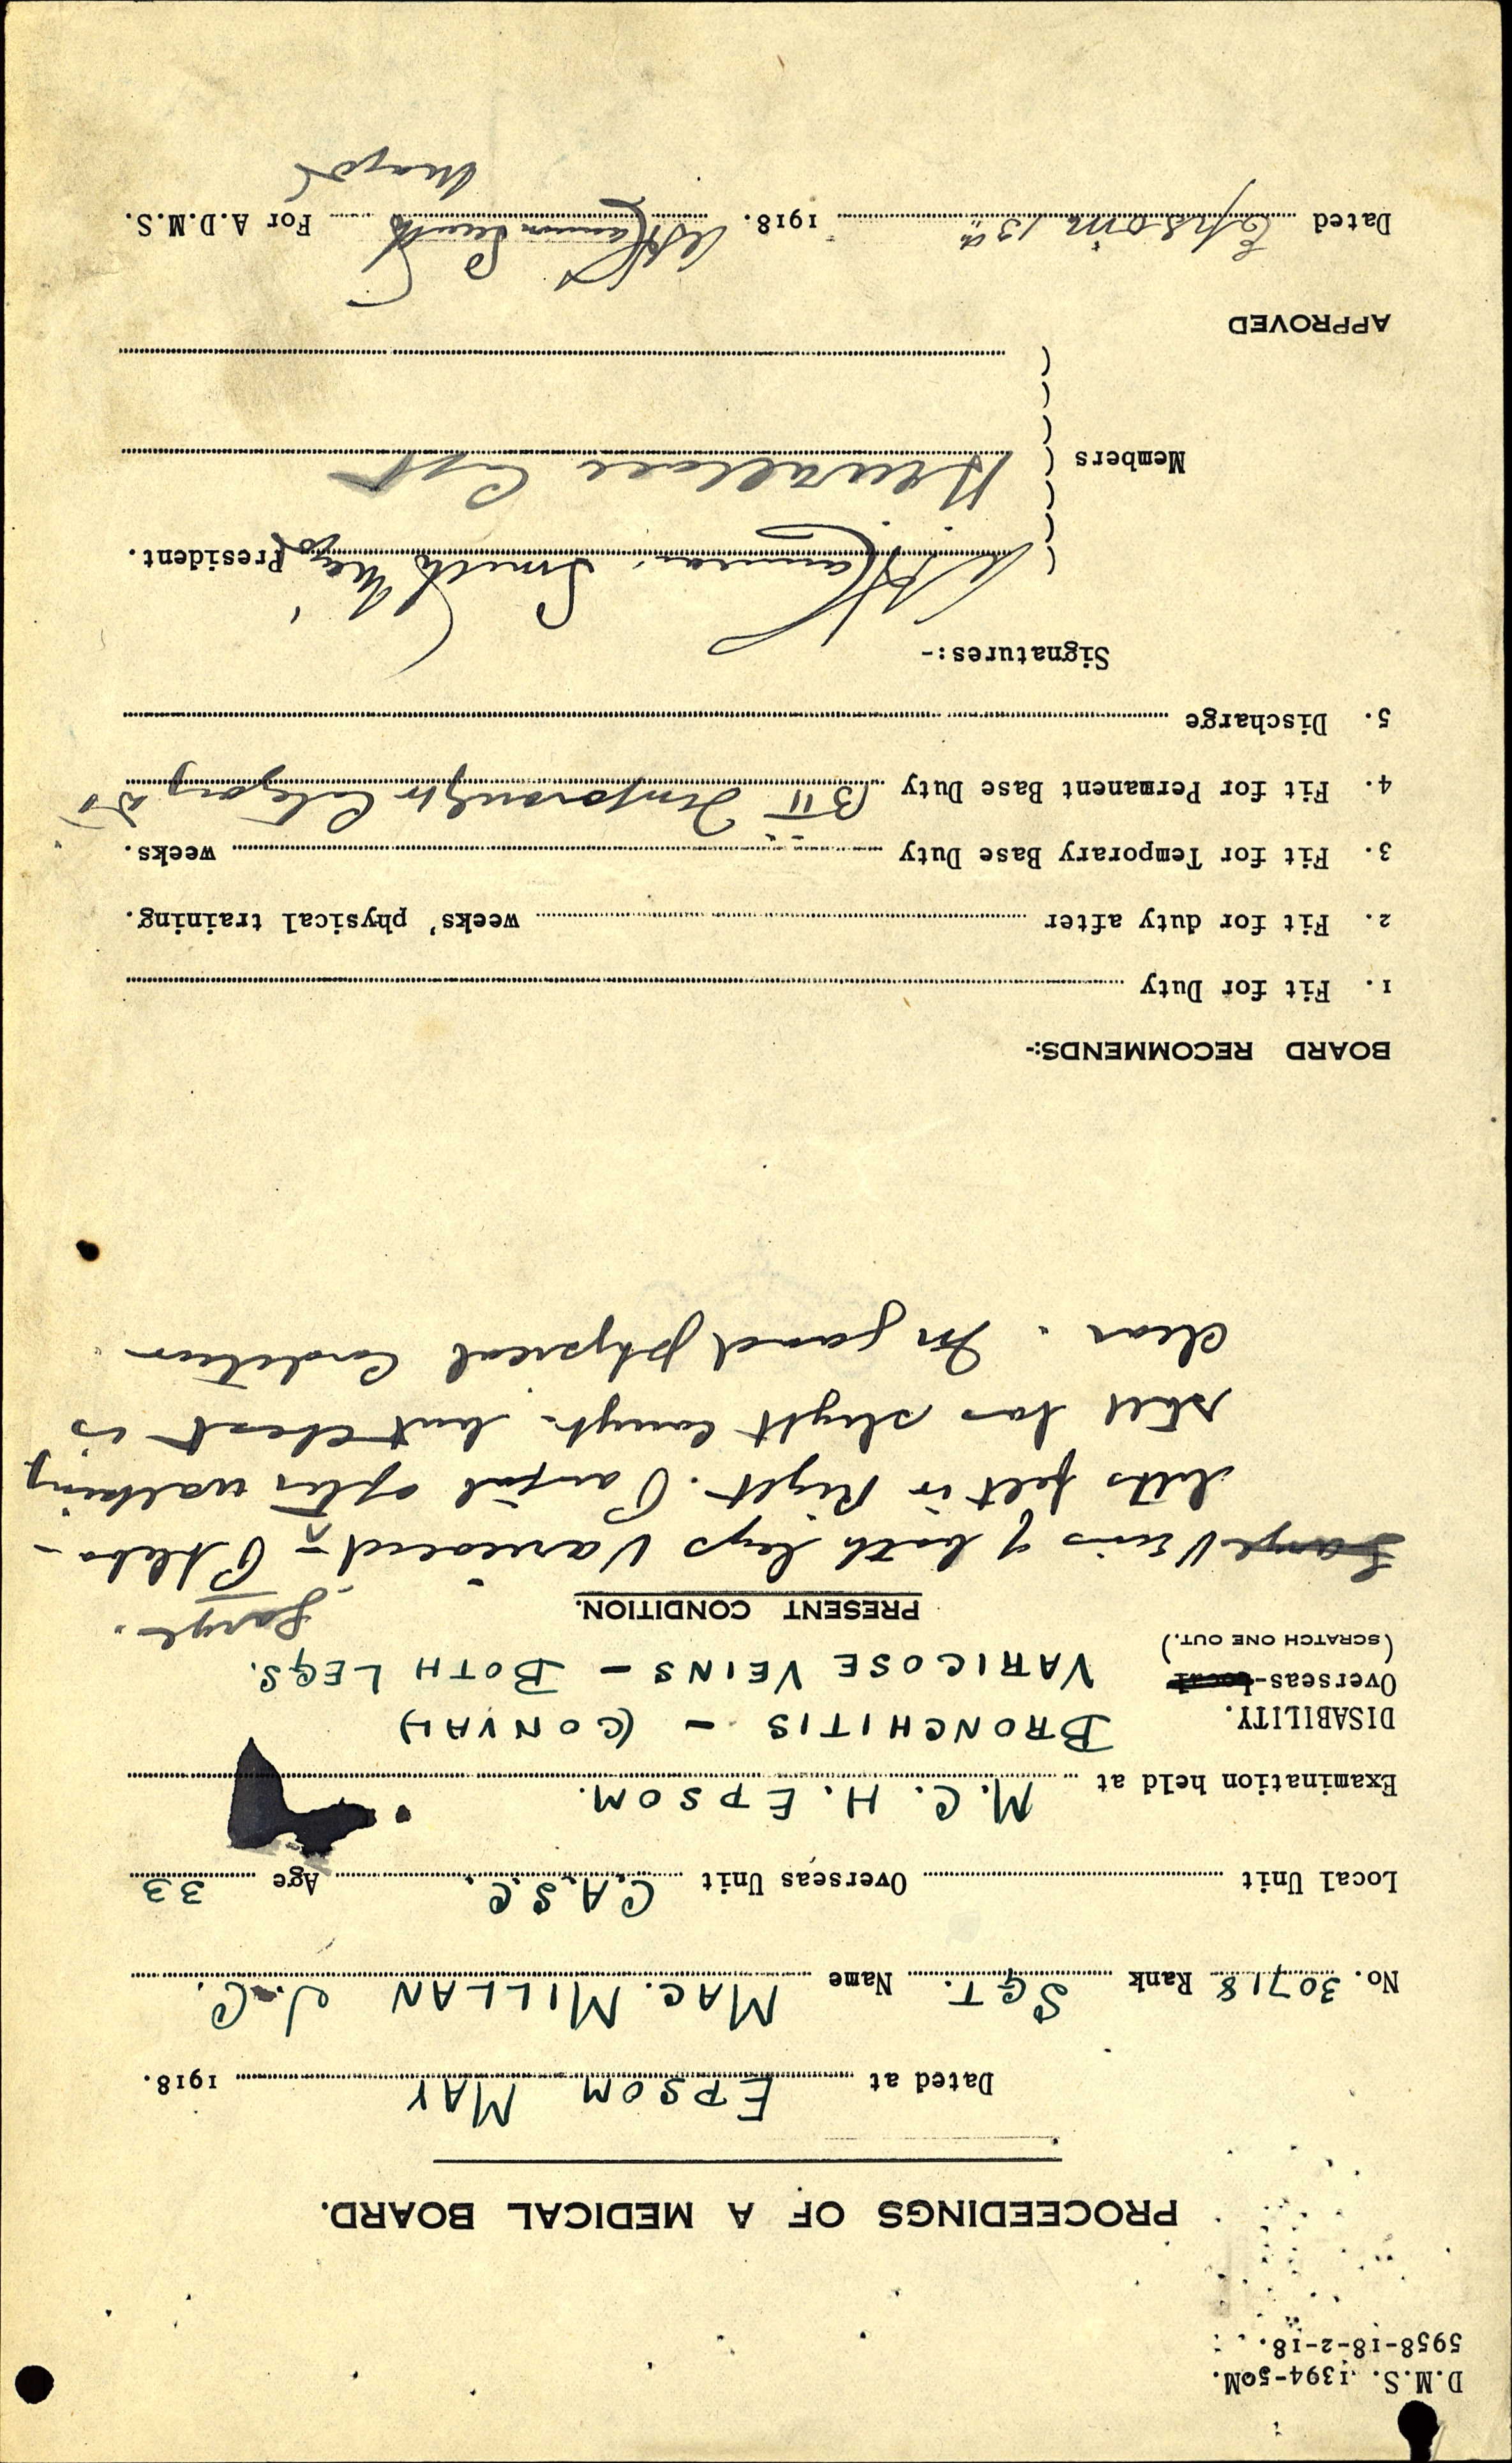 D.M.S. 1394-50M.
5958-18-2-18.
PROCEEDINGS OF A MEDICAL BOARD.
Dated at EPSOM MAY 1918.
No. 30718 Rank SGT. Name MAC. MILLAN J. C.
Local Unit Overseas Unit C.A.S.C. Age 33
Examination held at M. C. H. EPSOM.
DISABILITY. BRONCHITIS - (CONVAL)
Overseas-Local VARICOSE VEINS - BOTH LEGS.
(SCRATCH ONE OUT.)
PRESENT CONDITION. Large.
Large Veins of both legs Varicosed - Phlebo-
liths felt in Right. Painful after walking
still has slight cough but chest is
clear. In good physical Condition
BOARD RECOMMENDS:-
1. Fit for Duty
2. Fit for duty after weeks' physical training.
3. Fit for Temporary Base Duty weeks.
4. Fit for Permanent Base Duty B II Temporarily Category D
5. Discharge
Signatures:-
Smith Major President.
Members Wallace Capt
APPROVED
Dated Epsom 13th 1918. Smith For A.D.M.S.
Major